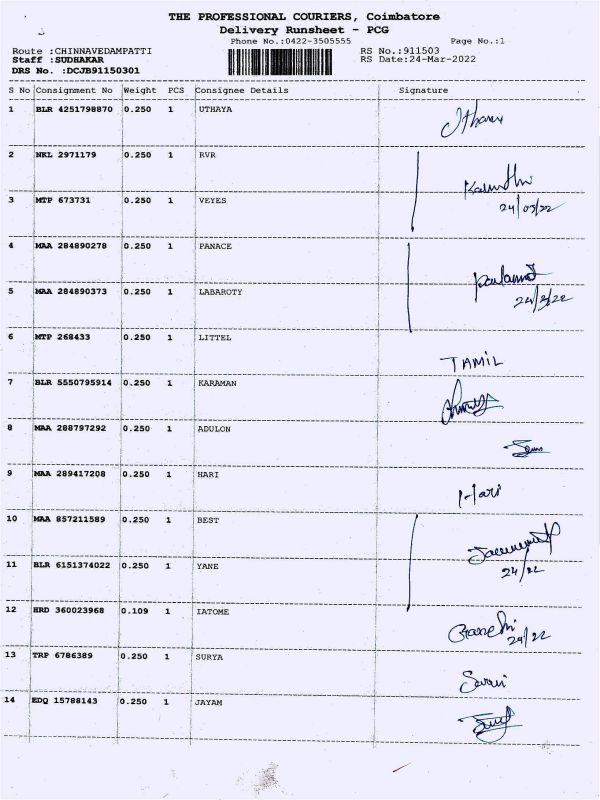 THE PROFESSIONAL COURIERS, Coimbatore
Delivery Runsheet - PCG
Phone No.:0422-3505555 Page No.:1
Route :CHINNAVEDAMPATTI RS No.:911503
Staff :SUDHAKAR RS Date:24-Mar-2022
DRS No. :DCJB91150301
S No Consignment No Weight PCS Consignee Details Signature
1 BLR 4251798870 0.250 1 UTHAYA
2 NKL 2971179 0.250 1 RVR
3 MTP 673731 0.250 1 VEYES
24/03/22
4 MAA 284890278 0.250 1 PANACE
5 MAA 284890373 0.250 1 LABAROTY
24/3/22
6 MTP 268433 0.250 1 LITTEL
TAMIL
7 BLR 5550795914 0.250 1 KARAMAN
8 MAA 288797292 0.250 1 ADULON
9 MAA 289417208 0.250 1 HARI
Hari
10 MAA 857211589 0.250 1 BEST
11 BLR 6151374022 0.250 1 YANE
24/22
12 HRD 360023968 0.109 1 IATOME
24/22
13 TRP 6786389 0.250 1 SURYA
14 EDQ 15788143 0.250 1 JAYAM